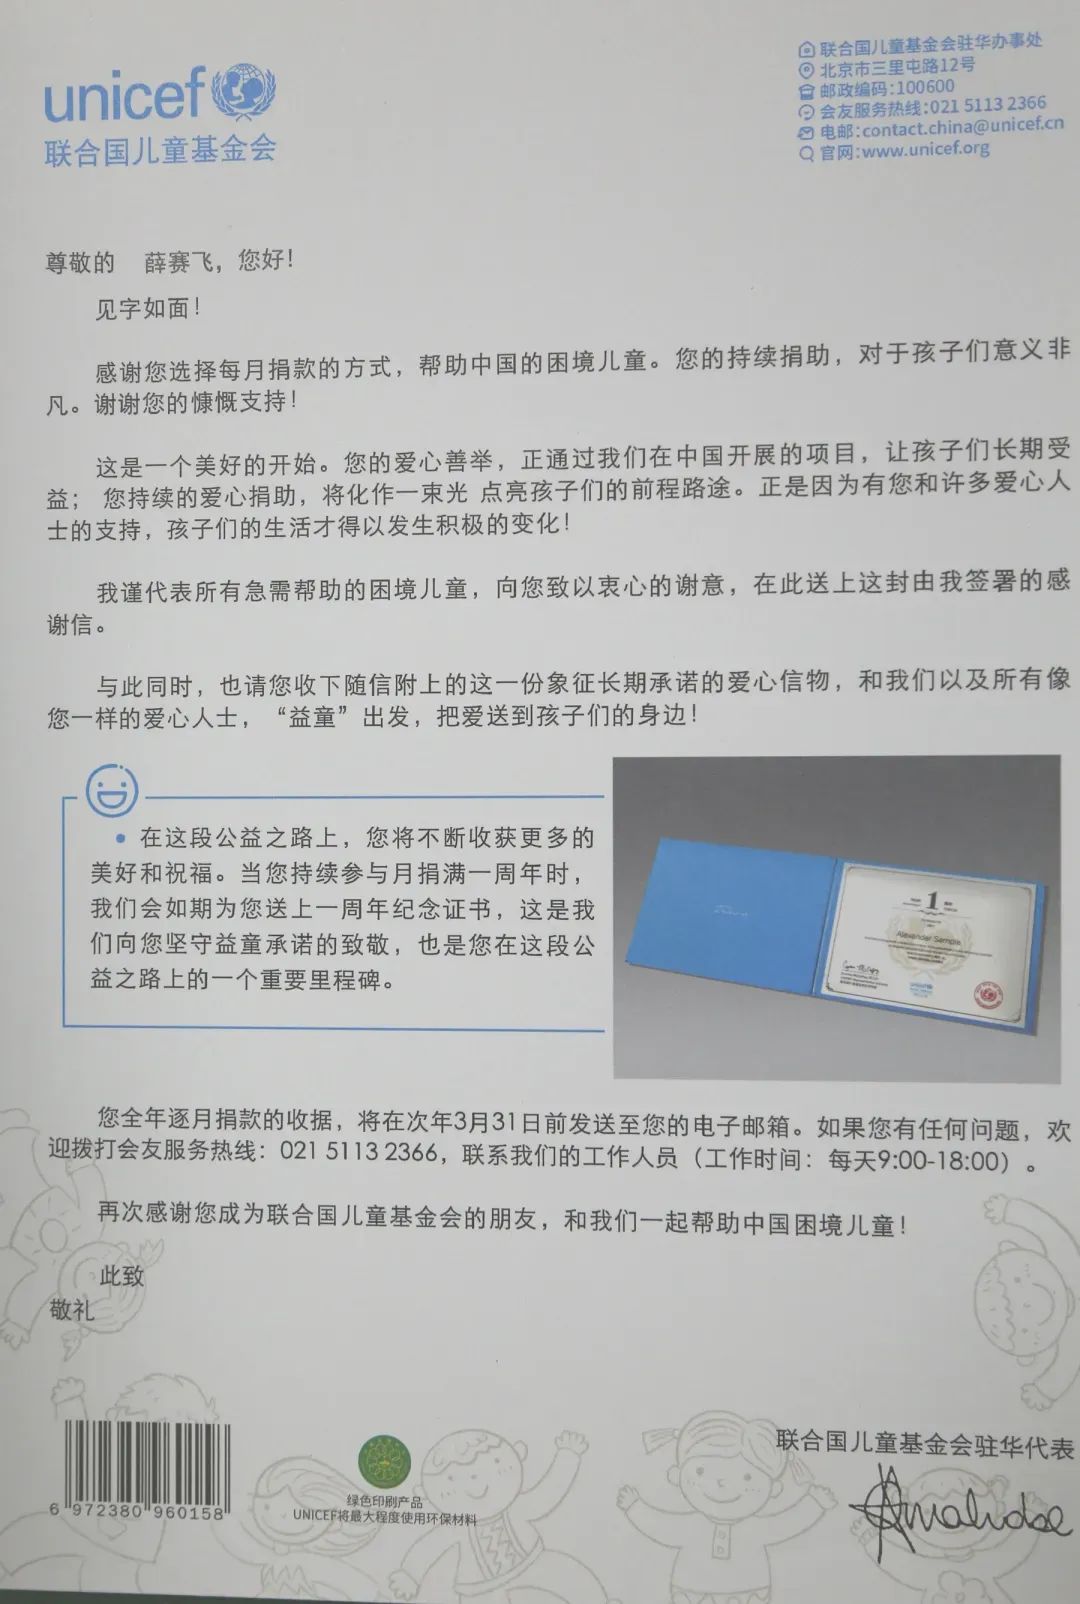 unicef
联合国儿童基金会
联合国儿童基金会驻华办事处
北京市三里屯路12号
邮政编码:100600
会友服务热线:021 5113 2366
电邮:contact.china@unicef.cn
官网:www.unicef.org
尊敬的 薛赛飞，您好！
见字如面！
感谢您选择每月捐款的方式，帮助中国的困境儿童。您的持续捐助，对于孩子们意义非
凡。谢谢您的慷慨支持！
这是一个美好的开始。您的爱心善举，正通过我们在中国开展的项目，让孩子们长期受
益； 您持续的爱心捐助，将化作一束光 点亮孩子们的前程路途。正是因为有您和许多爱心人
士的支持，孩子们的生活才得以发生积极的变化！
我谨代表所有急需帮助的困境儿童，向您致以衷心的谢意，在此送上这封由我签署的感
谢信。
与此同时，也请您收下随信附上的这一份象征长期承诺的爱心信物，和我们以及所有像
您一样的爱心人士，“益童”出发，把爱送到孩子们的身边！
• 在这段公益之路上，您将不断收获更多的
美好和祝福。当您持续参与月捐满一周年时，
我们会如期为您送上一周年纪念证书，这是我
们向您坚守益童承诺的致敬，也是您在这段公
益之路上的一个重要里程碑。
1
Alexander Sample
unicef
您全年逐月捐款的收据，将在次年3月31日前发送至您的电子邮箱。如果您有任何问题，欢
迎拨打会友服务热线：021 5113 2366，联系我们的工作人员（工作时间：每天9:00-18:00）。
再次感谢您成为联合国儿童基金会的朋友，和我们一起帮助中国困境儿童！
此致
敬礼
6 972380 960158
绿色印刷产品
UNICEF将最大程度使用环保材料
联合国儿童基金会驻华代表